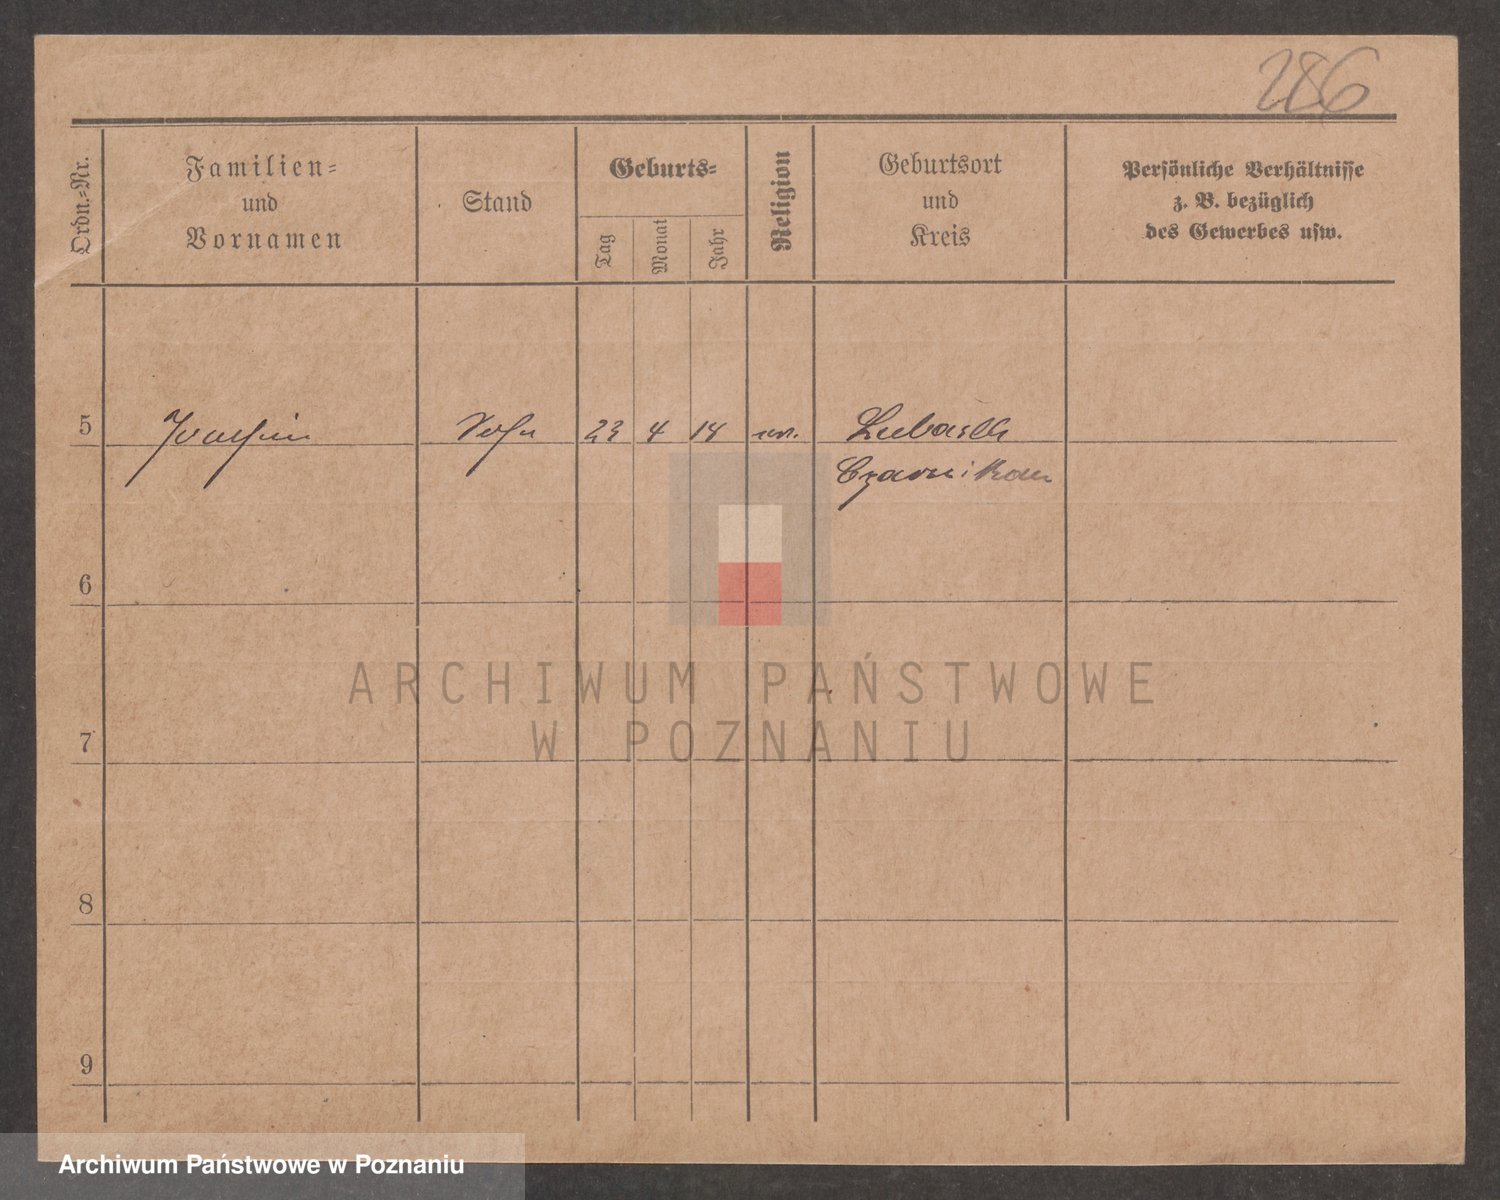 286
Ordn.-Nr.
Familien-
und
Vornamen
Stand
Geburts-
Tag
Monat
Jahr
Religion
Geburtsort
und
Kreis
Persönliche Verhältnisse
z. B. bezüglich
des Gewerbes usw.
5 Joachim Sohn 23 4 14 ev. Lubasch
Czarnikau
6
ARCHIWUM PAŃSTWOWE
W POZNANIU
7
8
9
Archiwum Państwowe w Poznaniu